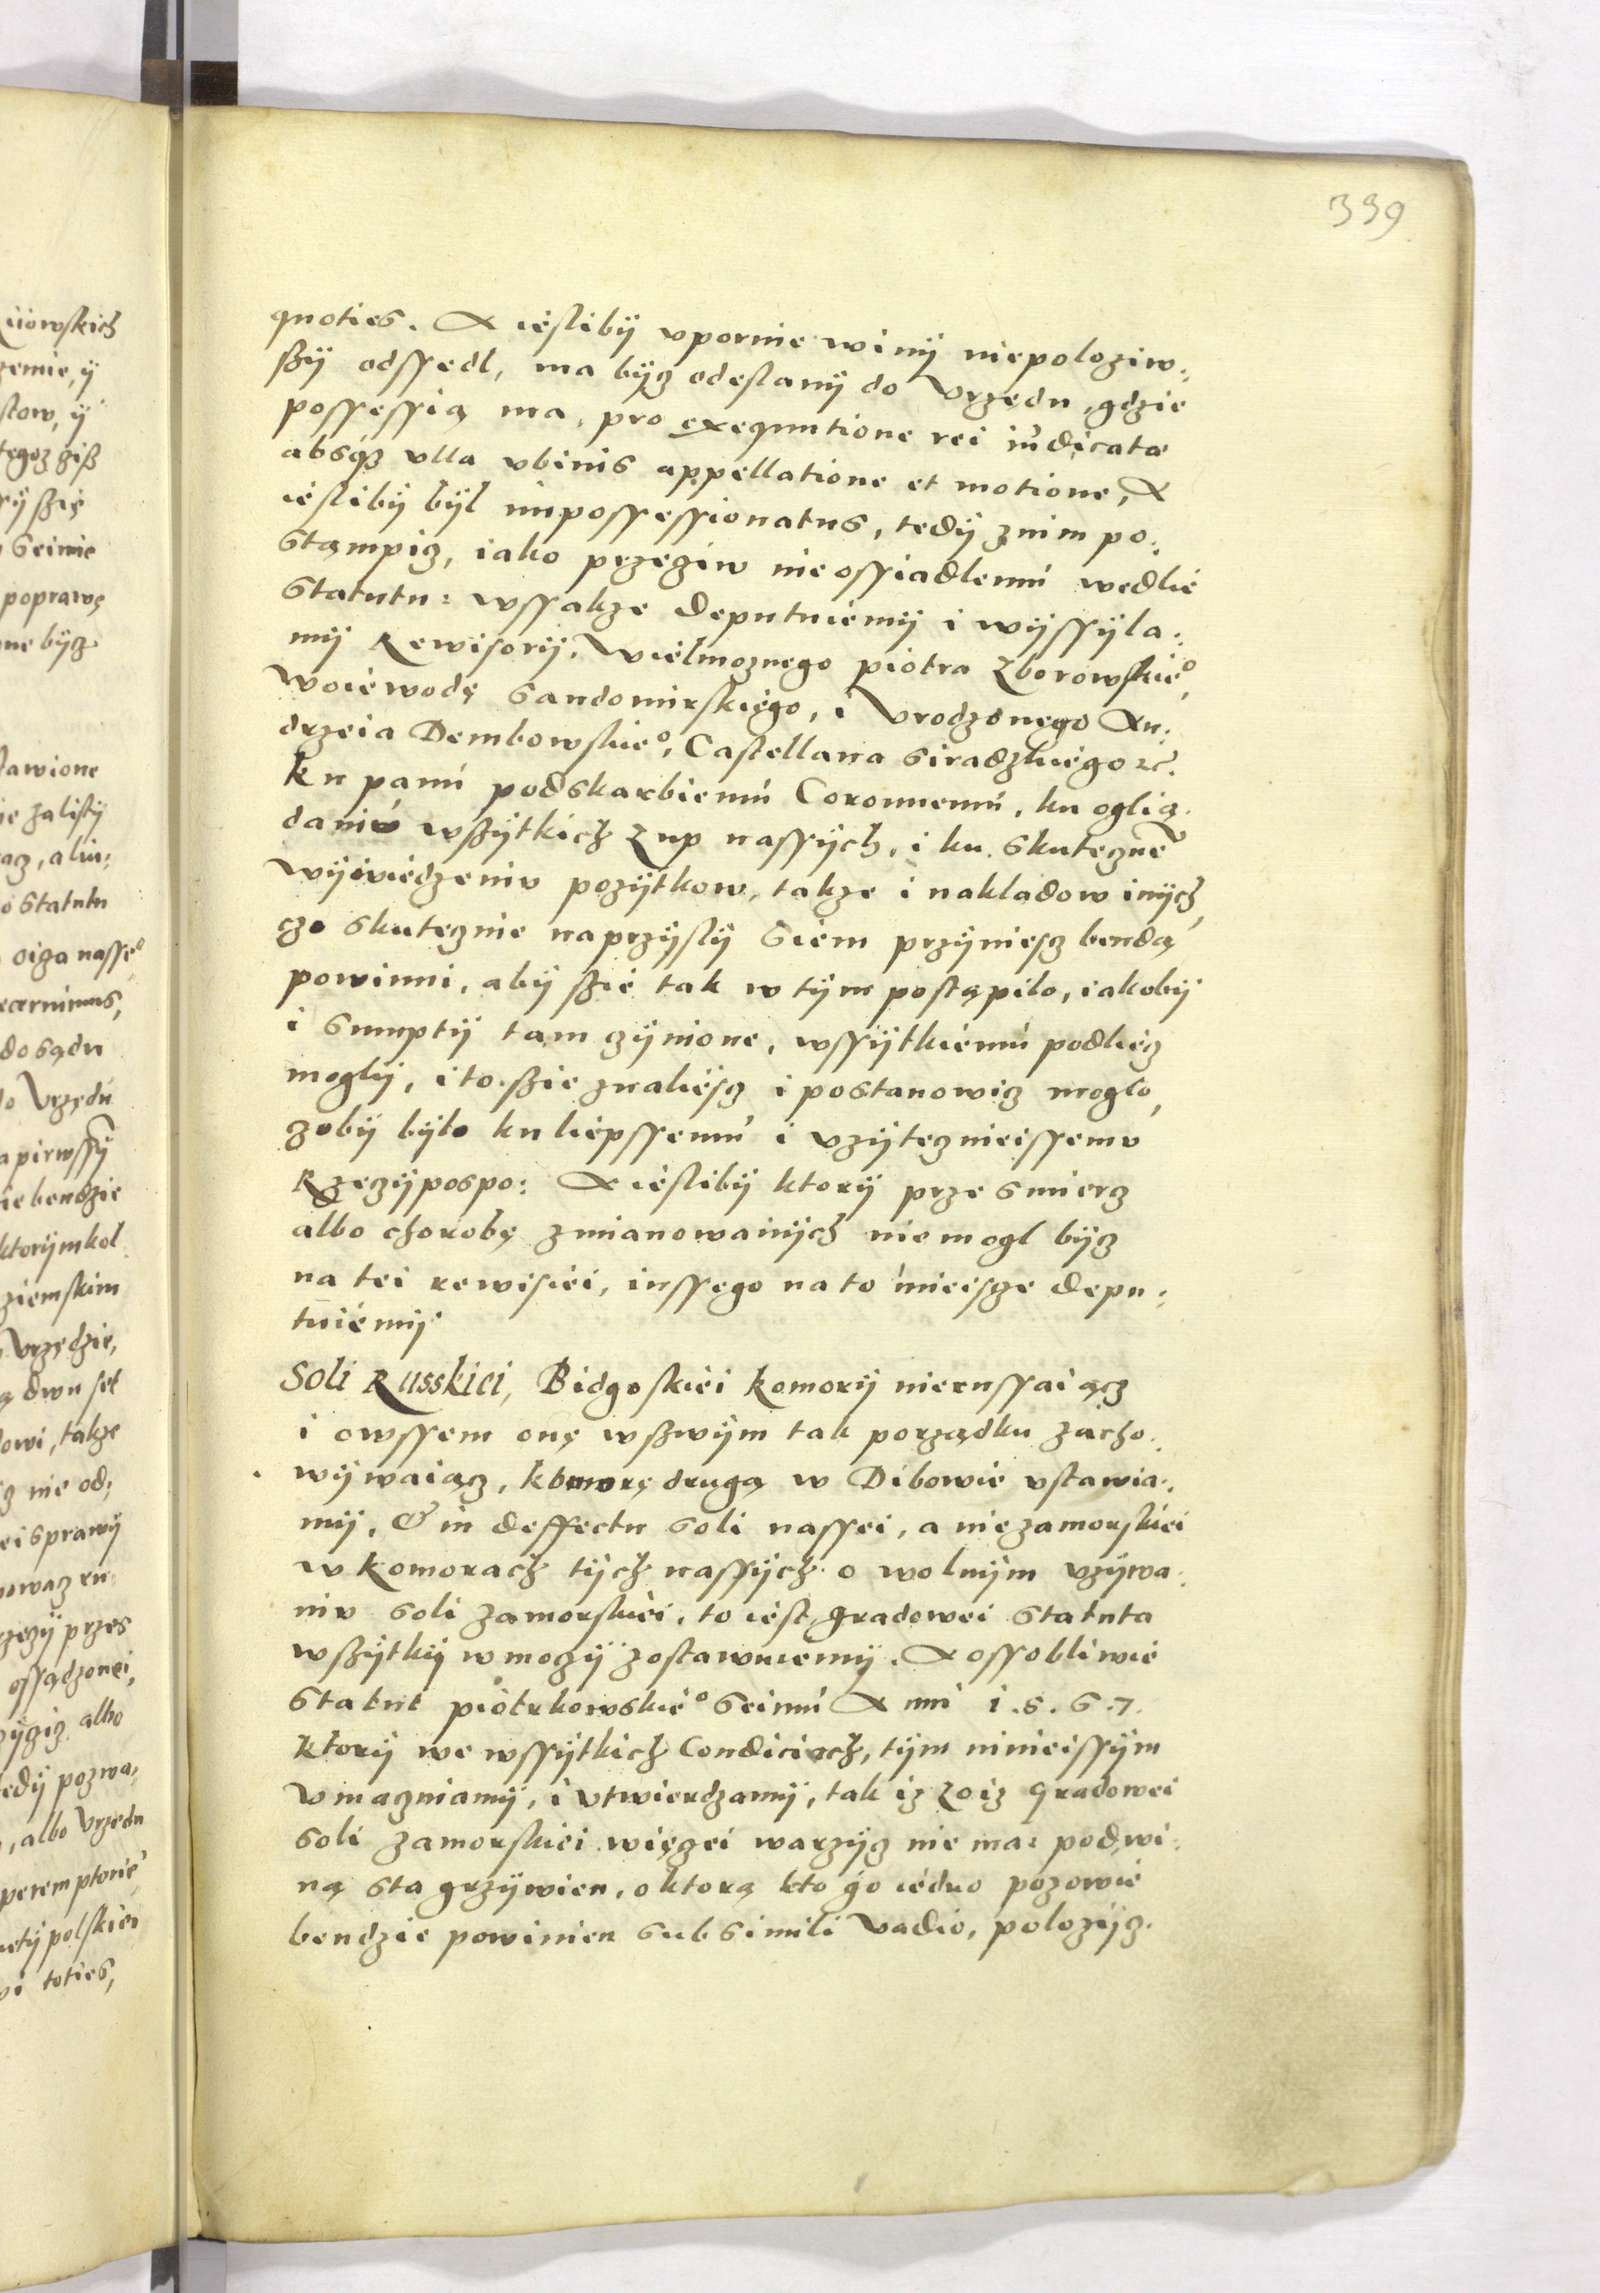 339
quoties. A iésliby vpornie winÿ niepoloziw:
ßÿ odssedl, ma bÿcz odeslanÿ do Vrzędu, gdzie
possessią ma, pro exequutione rei iudicatæ
absq3 vlla vbinis appellatione et motione, A
iéslibÿ bÿl impossessionatus, tedÿ znim po:
stąmpicz, iako przeciw nieossiadlemú wedlie
Statutu: wssakze deputuiémÿ i wÿssÿla:
mÿ Rewisorÿ, Wiélmoznego piotra Zborowskié°,
Woiéwodę Sandomirskiégo, i Vrodzonego An:
drzeia Dembowskie°, Castellana Siradzkiégo etc.
ku panú podskarbiemú Coronnemú, ku oglią
daniv wßÿtkich Zup nassÿch, i ku skutecznē
wÿwiédzeniv pozÿtkow, takze i nakladow inÿch,
czo skutecznie naprzÿslÿ Siém przÿniescz bendą
powinni, abÿ ßie tak w tÿm postąpilo, iakobÿ
i Sumptÿ tam czÿnione, wssÿtkiémú podliécz
moglÿ, i to ßie znaliéscz i postanowicz moglo,
czobÿ bÿlo ku liépssemú i vzÿtecznieissemv
Rzeczÿpospo: A iéslibÿ ktorÿ prze smiercz
albo chorobę zmianowanÿch niemogl bÿcz
na tei rewisiéi, inssego na to mieiscze depu:
tuiémÿ
Soli Russkiei, Bidgoskiéi komorÿ nierussaiącz
i owssem onę wßwÿm tak porządku zacho:
wÿwaiącz, komorę drugą w Dibowie vstawia:
mÿ, & in deffectu soli nassei, a niezamorskiéi
w komorach tÿch nassÿch o wolnÿm vzÿwa:
niv soli zamorskiéi, to iést gradowei Statuta
wßÿtkÿ w moczÿ zostawuiemÿ. A ossobliwie
Statut piotrkowskié° Seimú A nni 1.5.6.7.
ktorÿ we wssÿtkich Condiciach, tÿm ninieissÿm
vmaczniamÿ, i vtwierdzamÿ, tak iz zoiz gradowei
soli zamorskiéi więcei warzÿcz nie ma: pod wi:
ną sta grzÿwien, o ktorą kto go iédno pozowié
bendzie powinien sub simili vadio, polozÿcz.